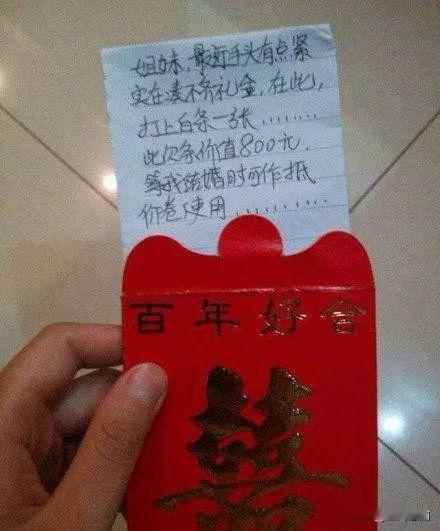 姐妹，最近手头有点紧
实在凑不齐礼金，在此，
打上白条一张........
此欠条价值800元，
等我结婚时可作抵
价卷使用.........
百年好合
囍